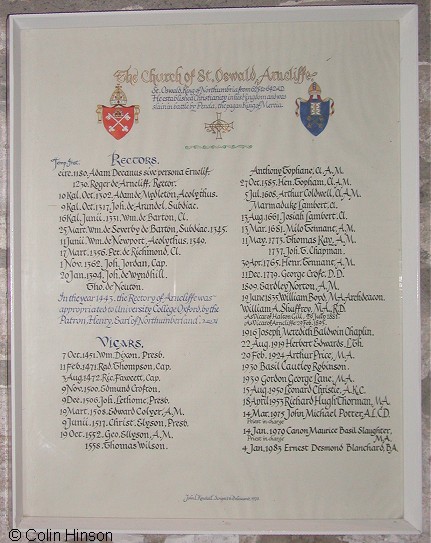 The Church of St. Oswald, Arncliffe
St. Oswald, King of Northumbria from 635 to 642 A.D.
He established Christianity in his kingdom and was
slain in battle by Penda, the pagan King of Mercia.
Temp. Incr. RECTORS.
circ. 1180. Adam Decanus sive persona Ernclif.
1230. Roger de Arncliff, Rector.
10 Kal. Oct. 1302. Adam de Mydleton, Acolythus.
9 Kal. Oct. 1317. Joh. de Arundel, Subdiac.
16 Kal. Junii, 1331. Wm. de Barton, Cl.
25 Mart. Wm. de Severby de Barton, Subdiac. 1345.
11 Junii, Wm. de Newport, Acolythus, 1349.
17 Mart. 1356. Pet. de Richmond, Cl.
1 Nov. 1362. Joh. Jordan, Cap.
20 Jan. 1394. Joh. de Wyndhill.
Tho. de Neuton.
In the year 1443, the Rectory of Arncliffe was
appropriated to University College Oxford, by the
Patron, Henry, Earl of Northumberland.
VICARS.
7 Oct. 1451. Wm. Dixon, Presb.
11 Feb. 1471. Rad. Thompson, Cap.
3 Aug. 1472. Ric. Fawcett, Cap.
9 Nov. 1500. Edmund Crofton.
9 Dec. 1506. Joh. Lethome, Presb.
19 Mart. 1508. Edward Colyer, A.M.
9 Junii 1517. Christ. Elyson, Presb.
19 Oct. 1552. Geo. Ellyson, A.M.
1558. Thomas Wilson.
Anthony Tophane, Cl. A.M.
27 Oct. 1585. Hen. Topham, Cl. A.M.
5 Jul. 1608. Arthur Coldwell, Cl. A.M.
Marmaduke Lambert, Cl.
13 Aug. 1661. Josiah Lambert, Cl.
13 Mar. 1681. Milo Tennant, A.M.
11 May. 1773. Thomas Kay, A.M.
1737. Joh. T. Chapman.
30 Apr. 1765. Henr. Tennant, A.M.
11 Dec. 1779. George Croft, D.D.
1809. Eardley Norton, A.M.
19 June 1835 William Boyd, M.A. Archdeacon.
William A. Shuffrey, M.A., R.D.
1916 Joseph Meredith Baldwin Chaplin
22 Aug. 1919 Herbert Edwards, L.Th.
29 Feb. 1924 Arthur Price, M.A.
1930 Basil Cautley Robinson.
1939 Gordon George Lane, M.A.
15 Aug. 1950 Leonard Christie, A.K.C.
18 April 1953 Richard Hugh Thorman, M.A.
14 Mar. 1975 John Michael Potter, A.L.C.D.
Priest in charge
14 Jan. 1979 Canon Maurice Basil Slaughter,
Priest in charge M.A.
4 Jan. 1983 Ernest Desmond Blanchard, B.A.
© Colin Hinson